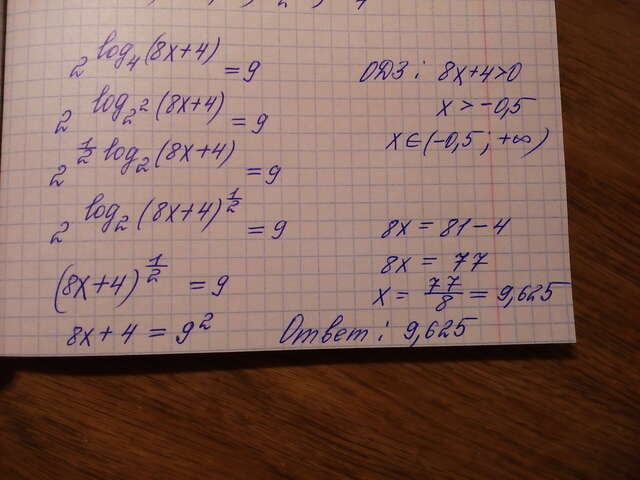 2^{log_4(8x+4)} = 9
2^{log_{2^2}(8x+4)} = 9
2^{\frac{1}{2}log_2(8x+4)} = 9
2^{log_2(8x+4)^{\frac{1}{2}}} = 9
(8x+4)^{\frac{1}{2}} = 9
8x+4 = 9^2
ОДЗ: 8x+4>0
x > -0,5
x∈(-0,5; +∞)
8x = 81-4
8x = 77
x = \frac{77}{8} = 9,625
Ответ: 9,625